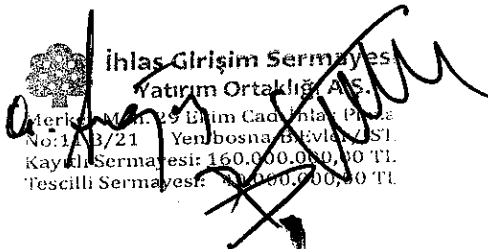 İhlas Girişim Sermayesi
Yatırım Ortaklığı A.Ş.
Merkez Mah. 29 Ekim Cad. İhlas Plaza
No:11 B/21 Yenibosna B.Evler/İST.
Kayıtlı Sermayesi: 160.000.000,00 TL
Tescilli Sermayesi: 40.000.000,00 TL